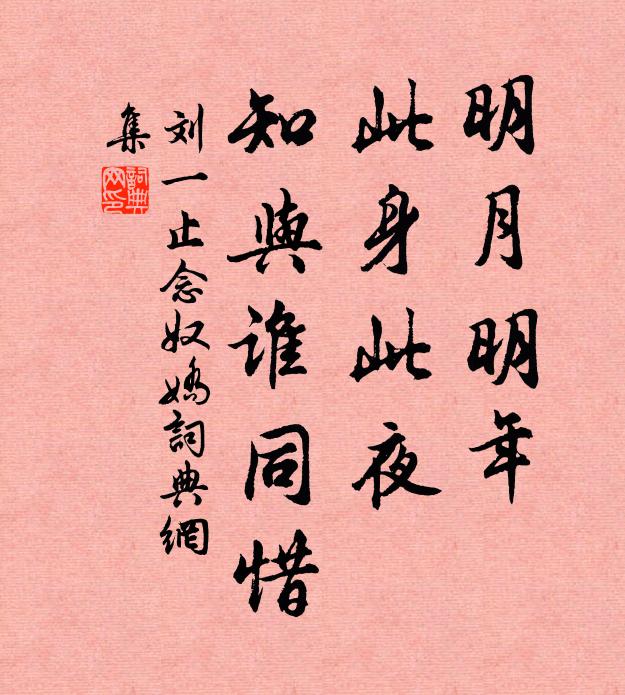 明月明年
此身此夜
知與誰同惜
刘一止念奴嬌詞典網
集
詞典
网印